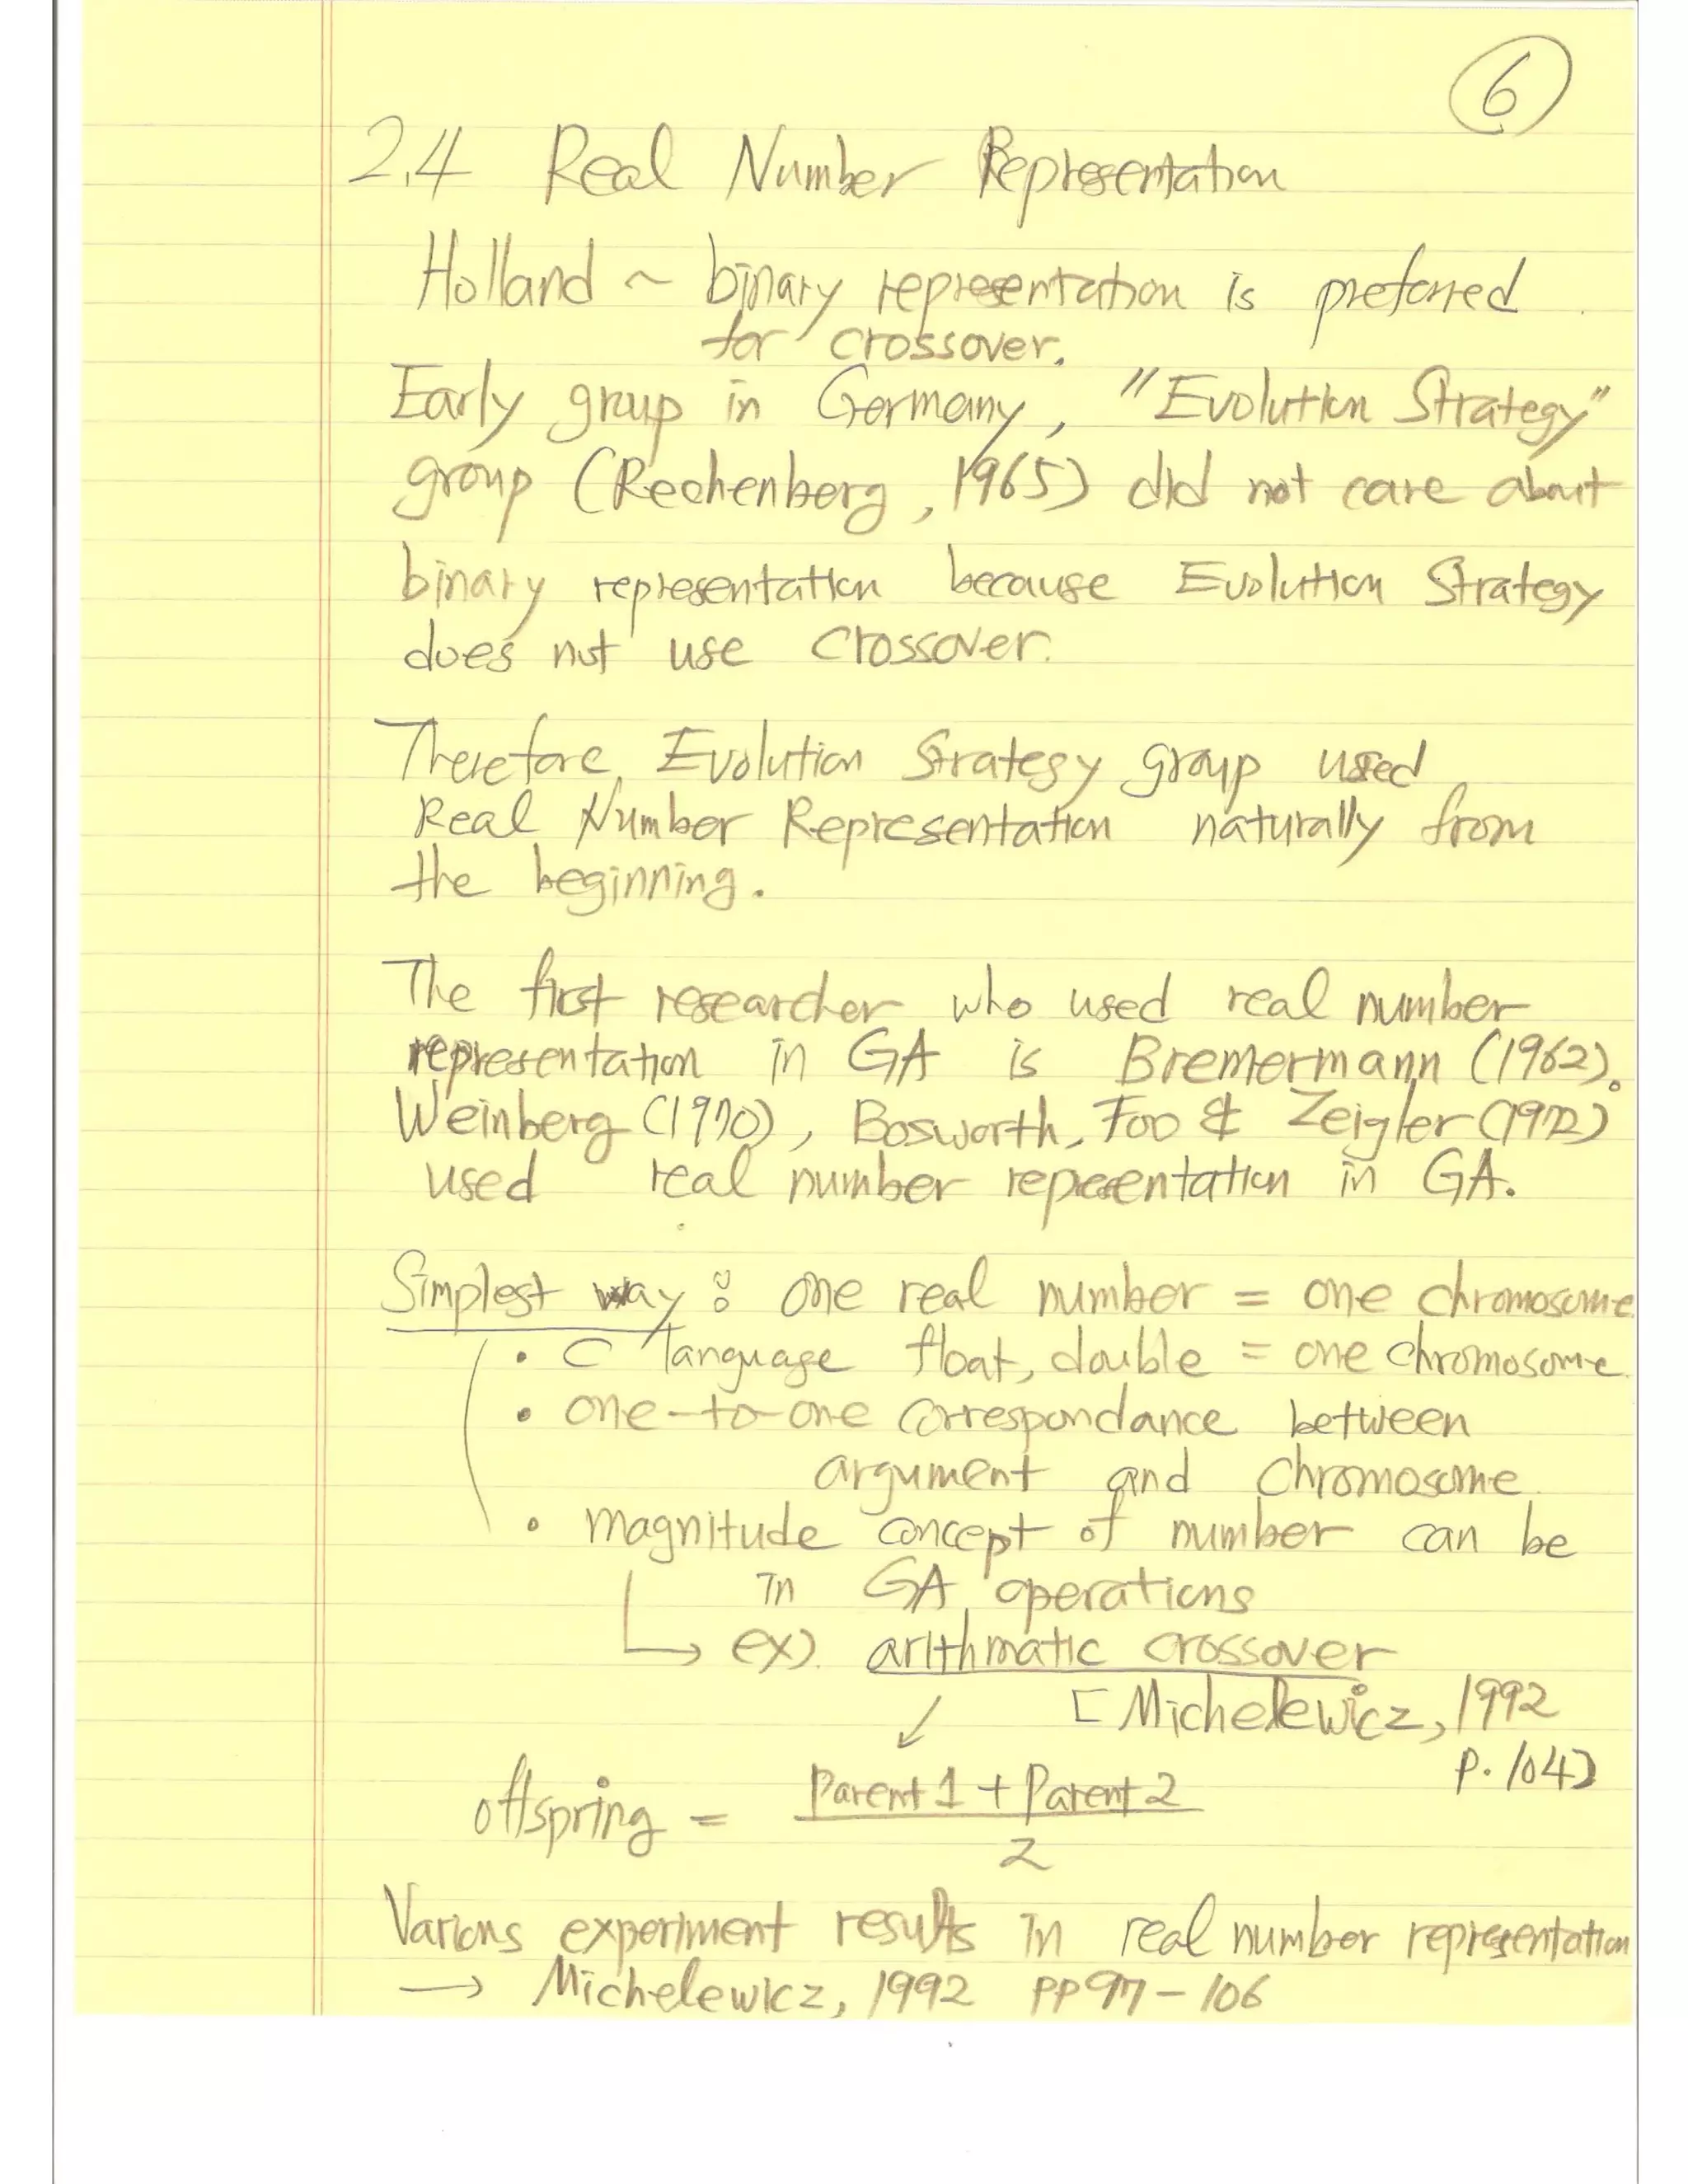 6
2.4 Real Number Representation
Holland ~ binary representation is preferred
for crossover.
Early group in Germany, "Evolution Strategy"
group (Rechenberg, 1965) did not care about
binary representation because Evolution Strategy
does not use crossover.
Therefore, Evolution Strategy group used
Real Number Representation naturally from
the beginning.
The first researcher who used real number
representation in GA is Bremermann (1962).
Weinberg (1970), Bosworth, Foo & Zeigler (1972)
used real number representation in GA.
Simplest way : one real number = one chromosome
• C language float, double = one chromosome.
• one-to-one correspondance between
argument and chromosome
• magnitude concept of number can be
in GA operations
↳ ex). arithmatic crossover
[Michelewicz, 1992
p. 104]
offspring = Parent 1 + Parent 2
2
Various experiment results in real number representation
→ Michelewicz, 1992 pp 97 - 106